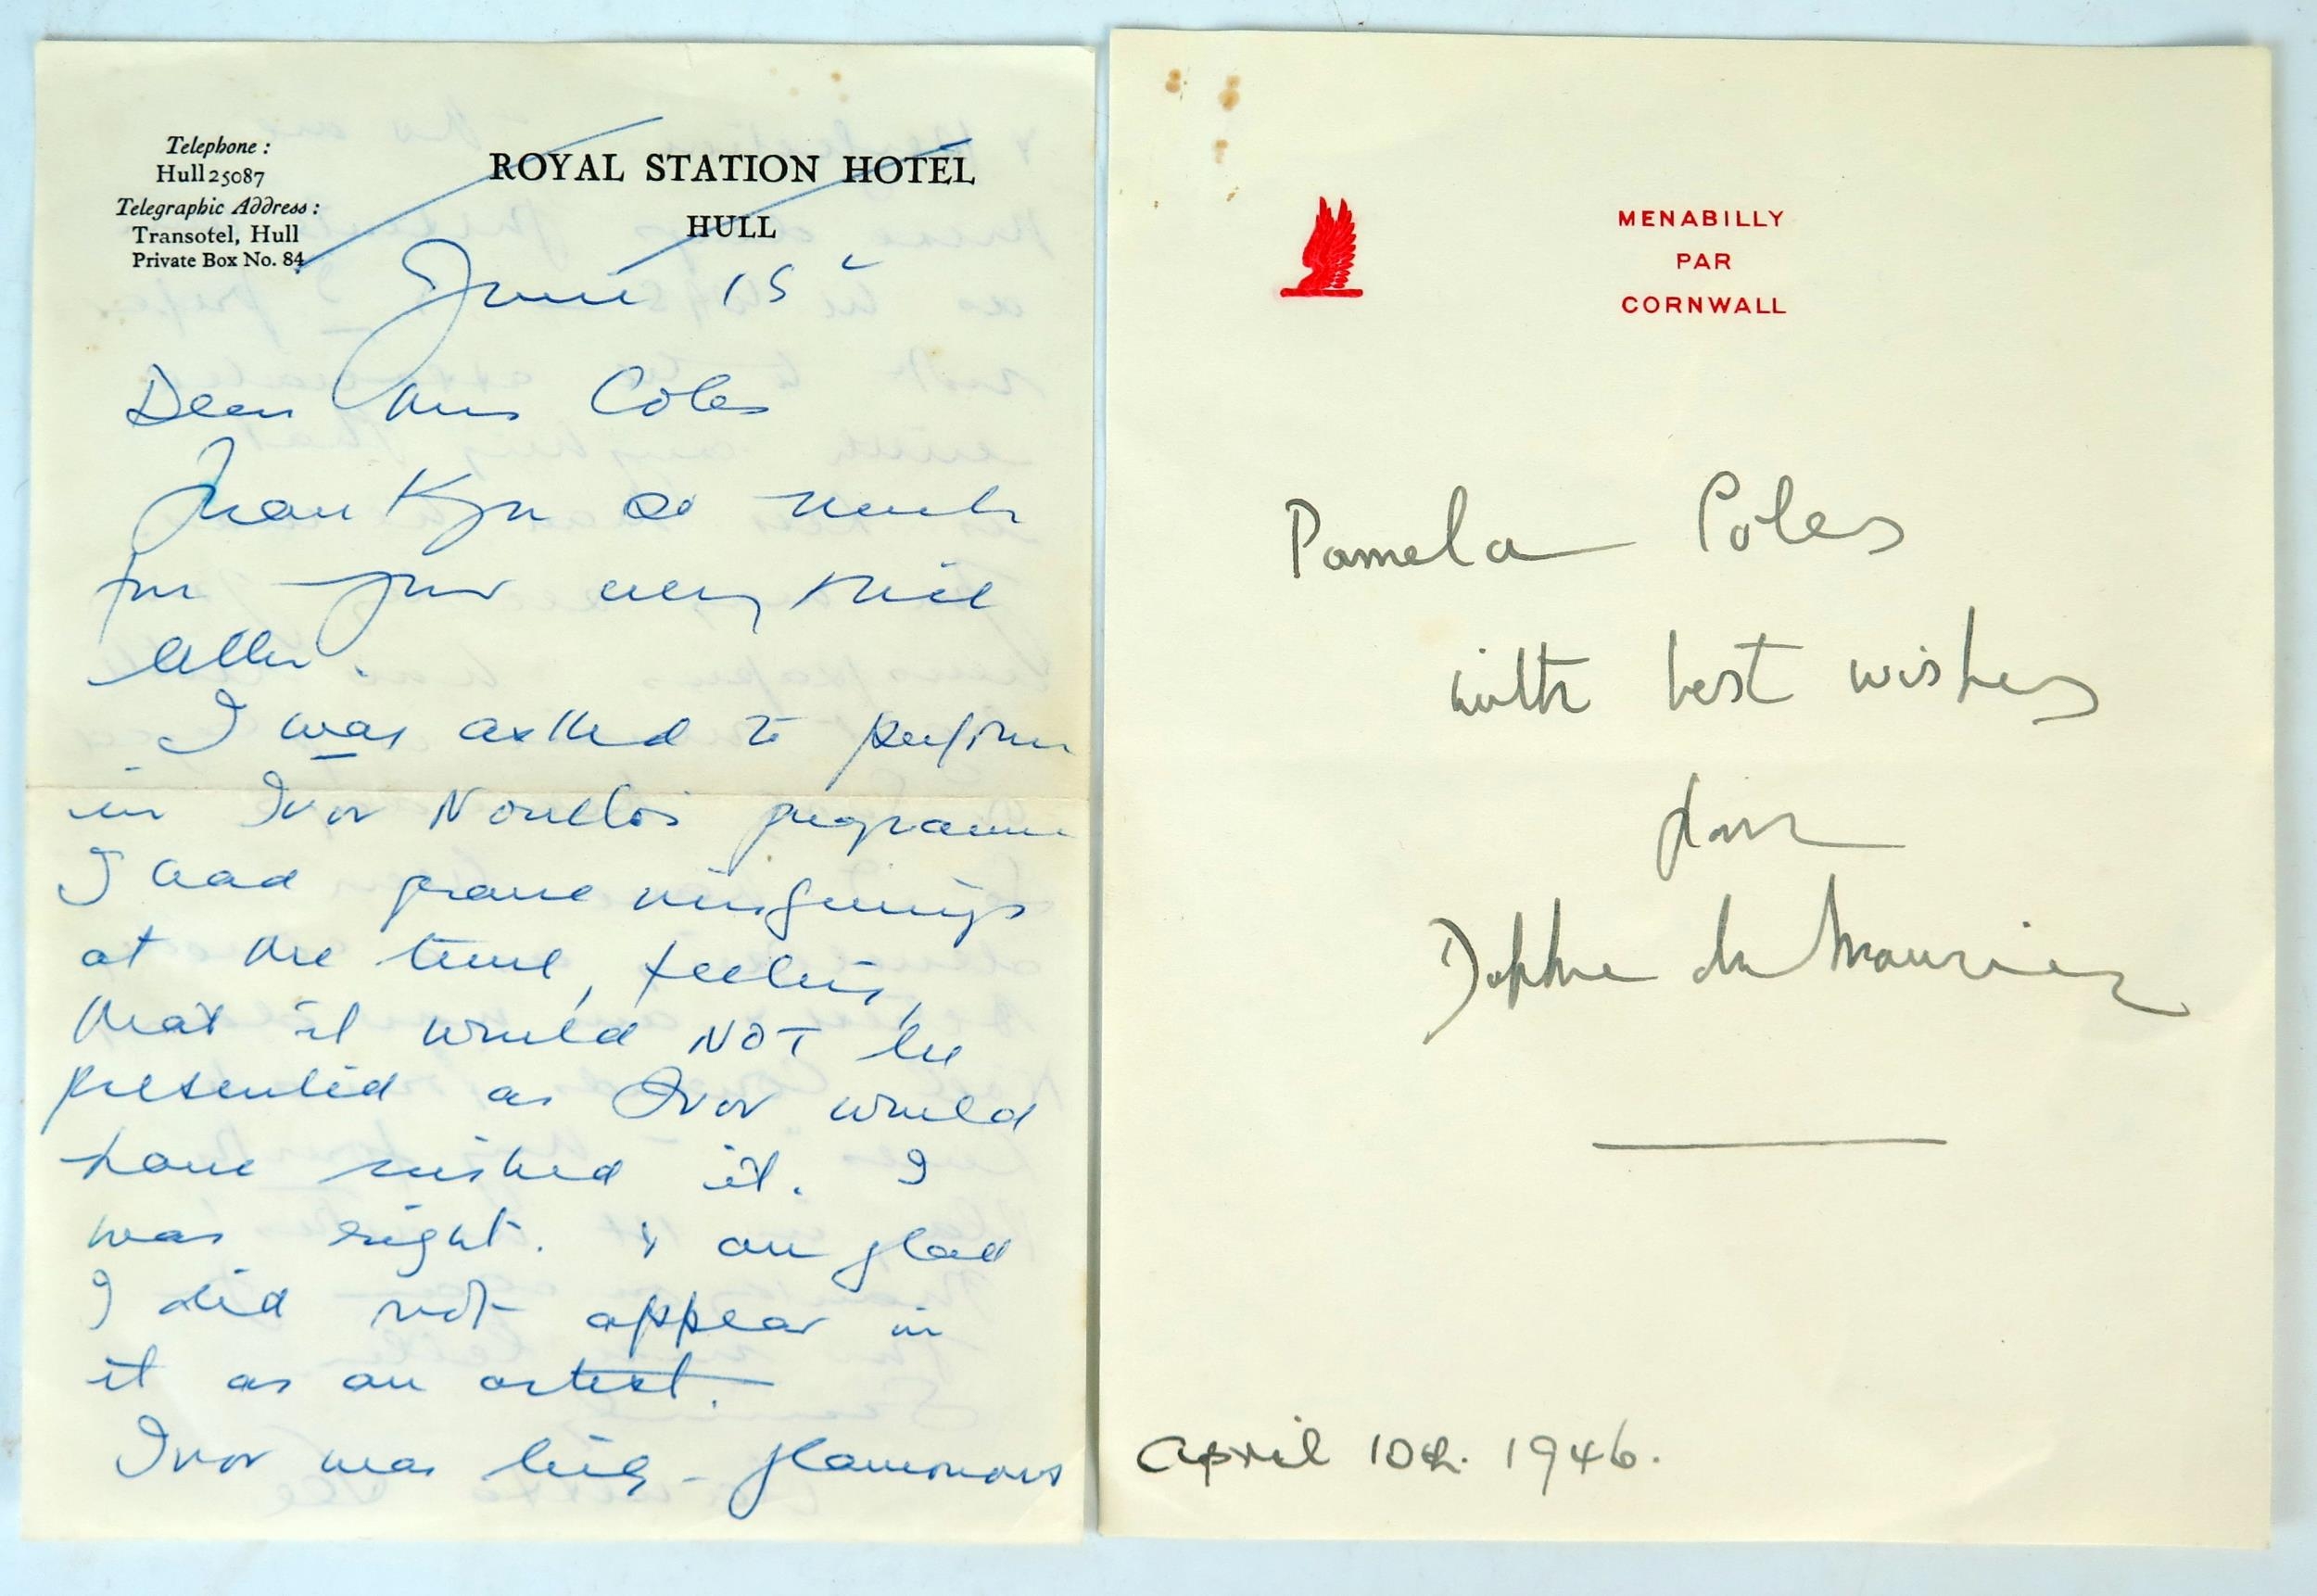 Telephone :
Hull 25087
Telegraphic Address :
Transotel, Hull
Private Box No. 84
ROYAL STATION HOTEL
HULL
June 15
Dear Miss Coles
Thank you so much
for your very nice
letter.
I was asked to perform
in Ivor Novello's programme
I had grave misgivings
at the time, feeling,
that it would NOT be
presented as Ivor would
have wished it. I
was right. & am glad
I did not appear in
it as an artist.
Ivor was big - glamorous
MENABILLY
PAR
CORNWALL
Pamela Coles
with best wishes
from
Daphne du Maurier
April 10th. 1946.